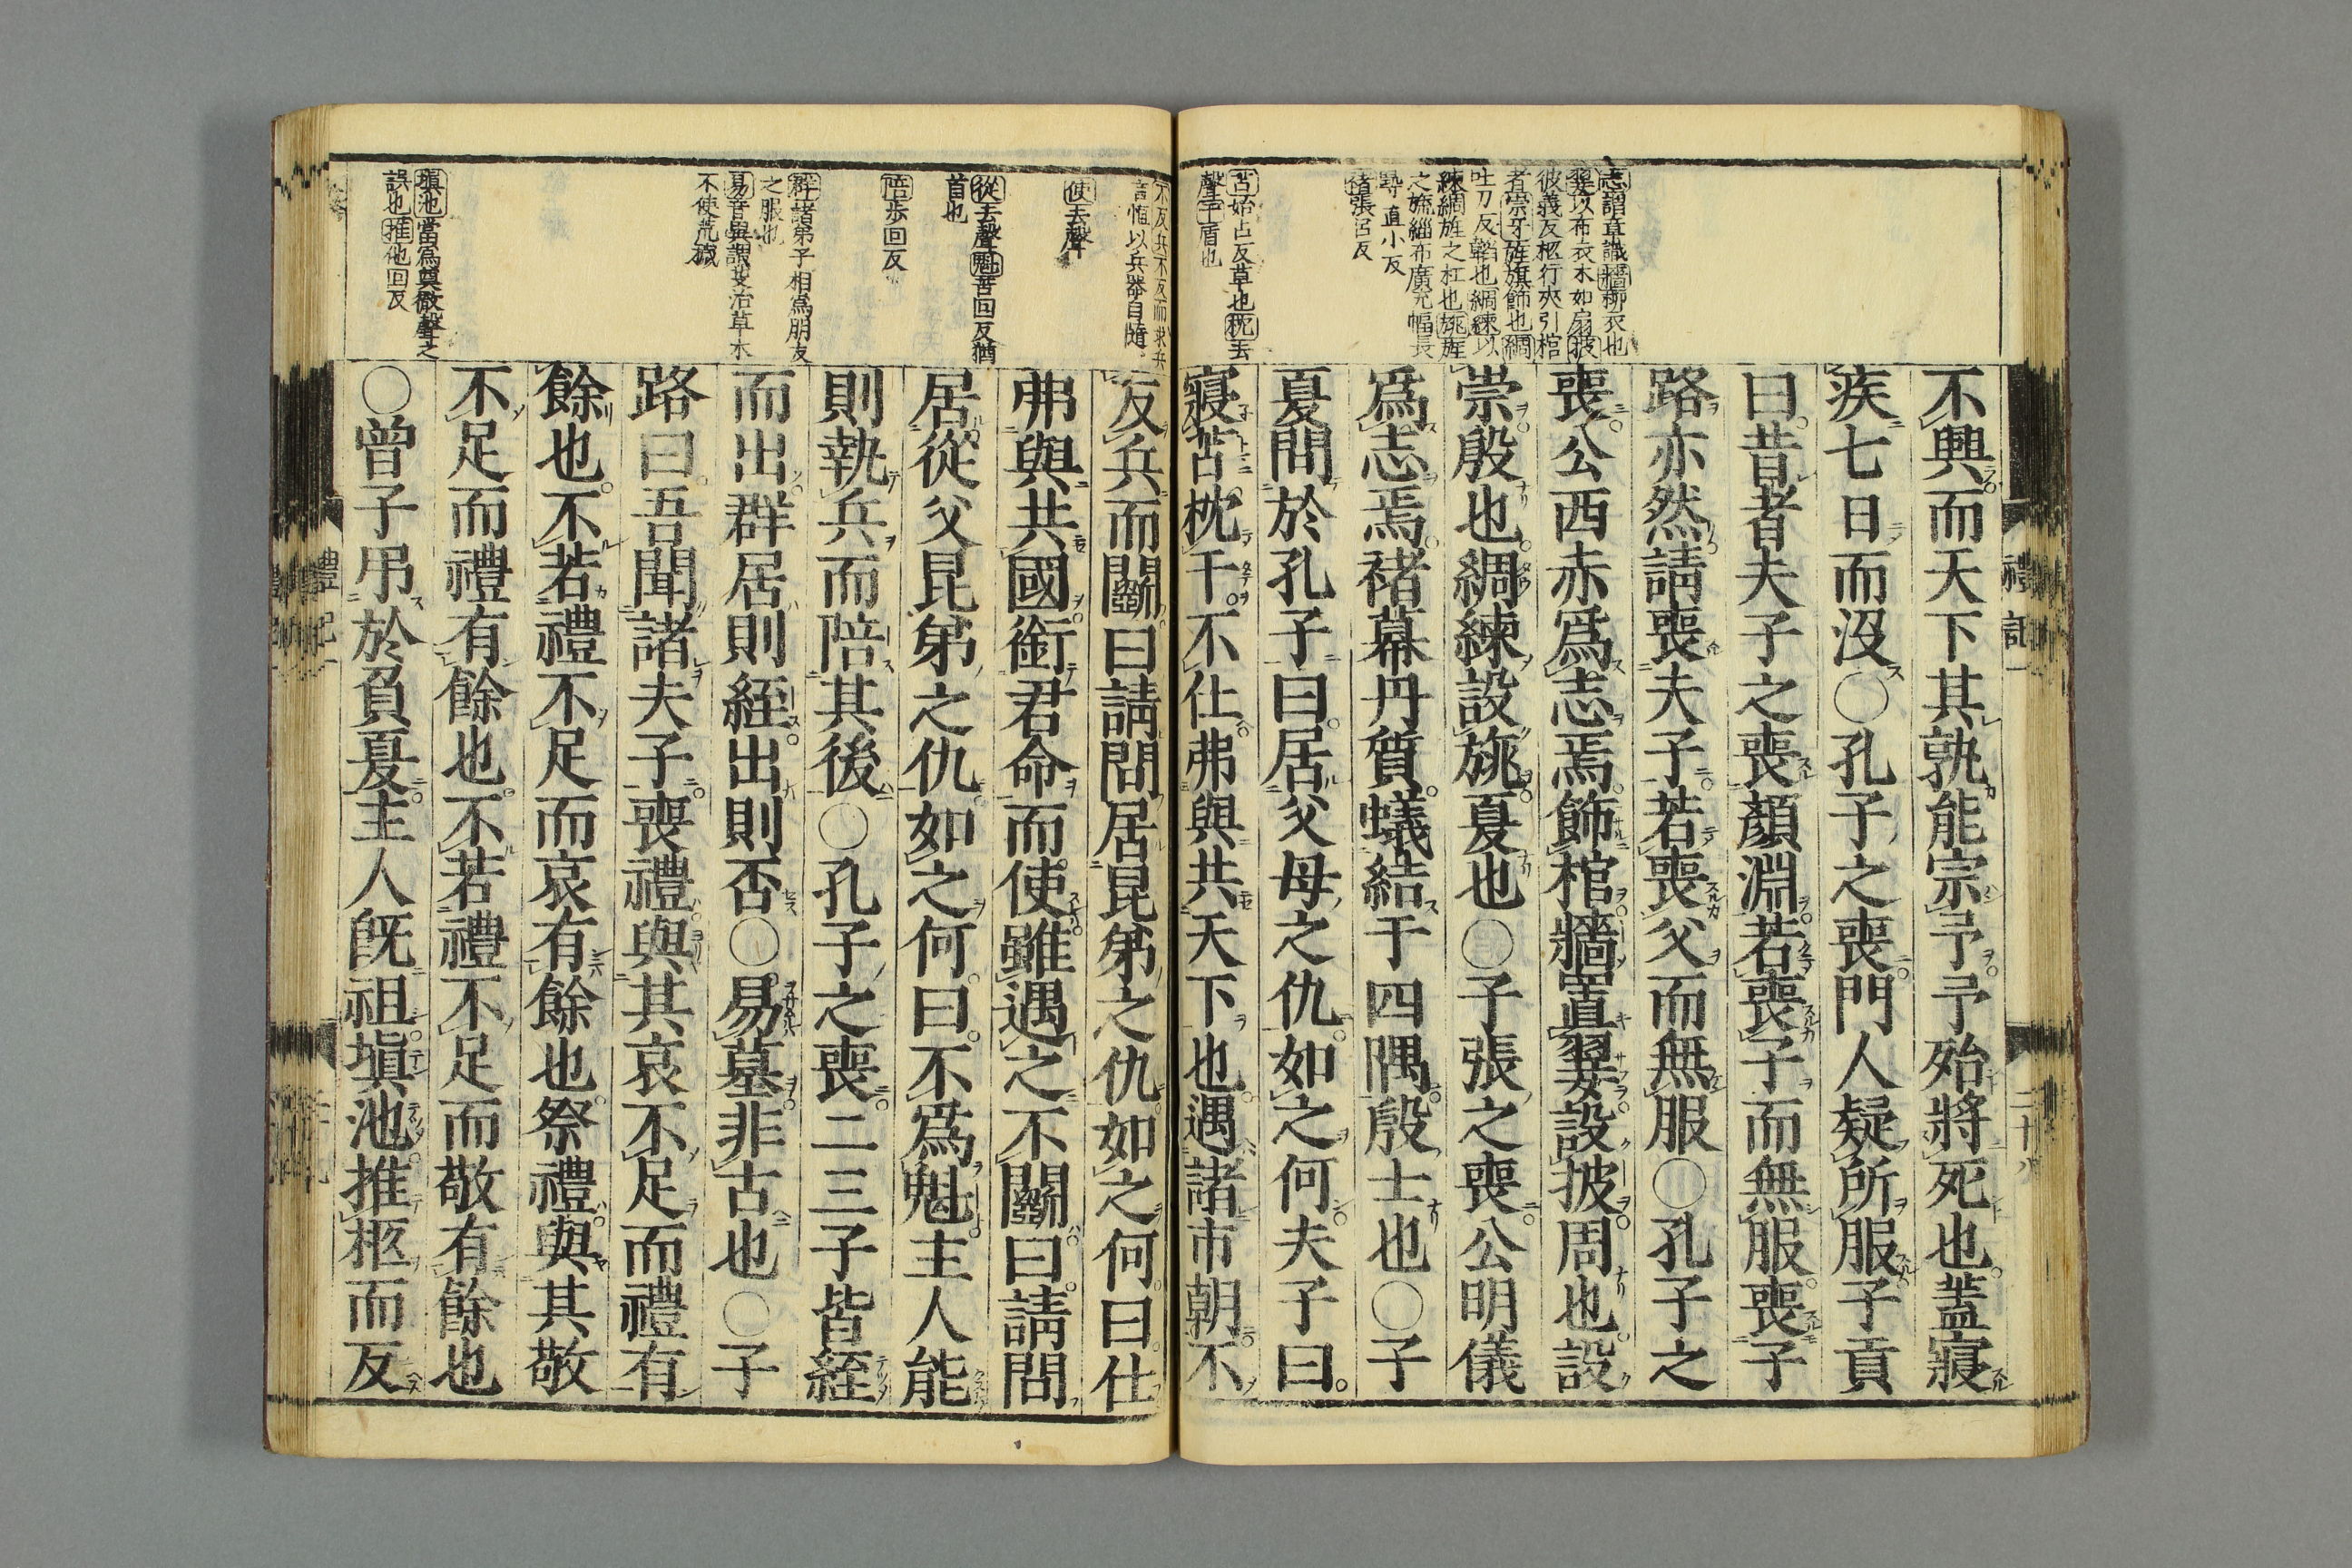 不興而天下其孰能宗予予殆將死也蓋寢
疾七日而沒○孔子之喪門人疑所服子貢
曰昔者夫子之喪顏淵若喪子而無服喪子
路亦然請喪夫子若喪父而無服○孔子之
喪公西赤爲志焉飾棺牆置翣設披周也設
崇殷也綢練設旐夏也○子張之喪公明儀
爲志焉褚幕丹質蟻結于四隅殷士也○子
夏問於孔子曰居父母之仇如之何夫子曰
寢苫枕干不仕弗與共天下也遇諸市朝不
志謂章識牆柳衣也
翣以布衣木如扇披
彼義反柩行夾引棺
者崇牙旌旗飾也綢
吐刀反韜也綢練以
練綢旌之杠也旐旌
之旒緇布廣充幅長
尋直小反
褚張呂反
苫始占反草也枕去
聲干盾也
禮記一
二十八
反兵而鬭曰請問居昆弟之仇如之何曰仕
弗與共國銜君命而使雖遇之不鬭曰請問
居從父昆弟之仇如之何曰不爲魁主人能
則執兵而陪其後○孔子之喪二三子皆絰
而出群居則絰出則否○易墓非古也○子
路曰吾聞諸夫子喪禮與其哀不足而禮有
餘也不若禮不足而哀有餘也祭禮與其敬
不足而禮有餘也不若禮不足而敬有餘也
○曾子弔於負夏主人既祖塡池推柩而反
不反兵不反而求兵
言恒以兵器自隨
使去聲
從去聲魁苦回反猶
首也
陪步回反
群諸弟子相爲朋友
之服也
易音異謂芟治草木
不使荒穢
塡池當爲奠徹聲之
誤也推他回反
禮記一